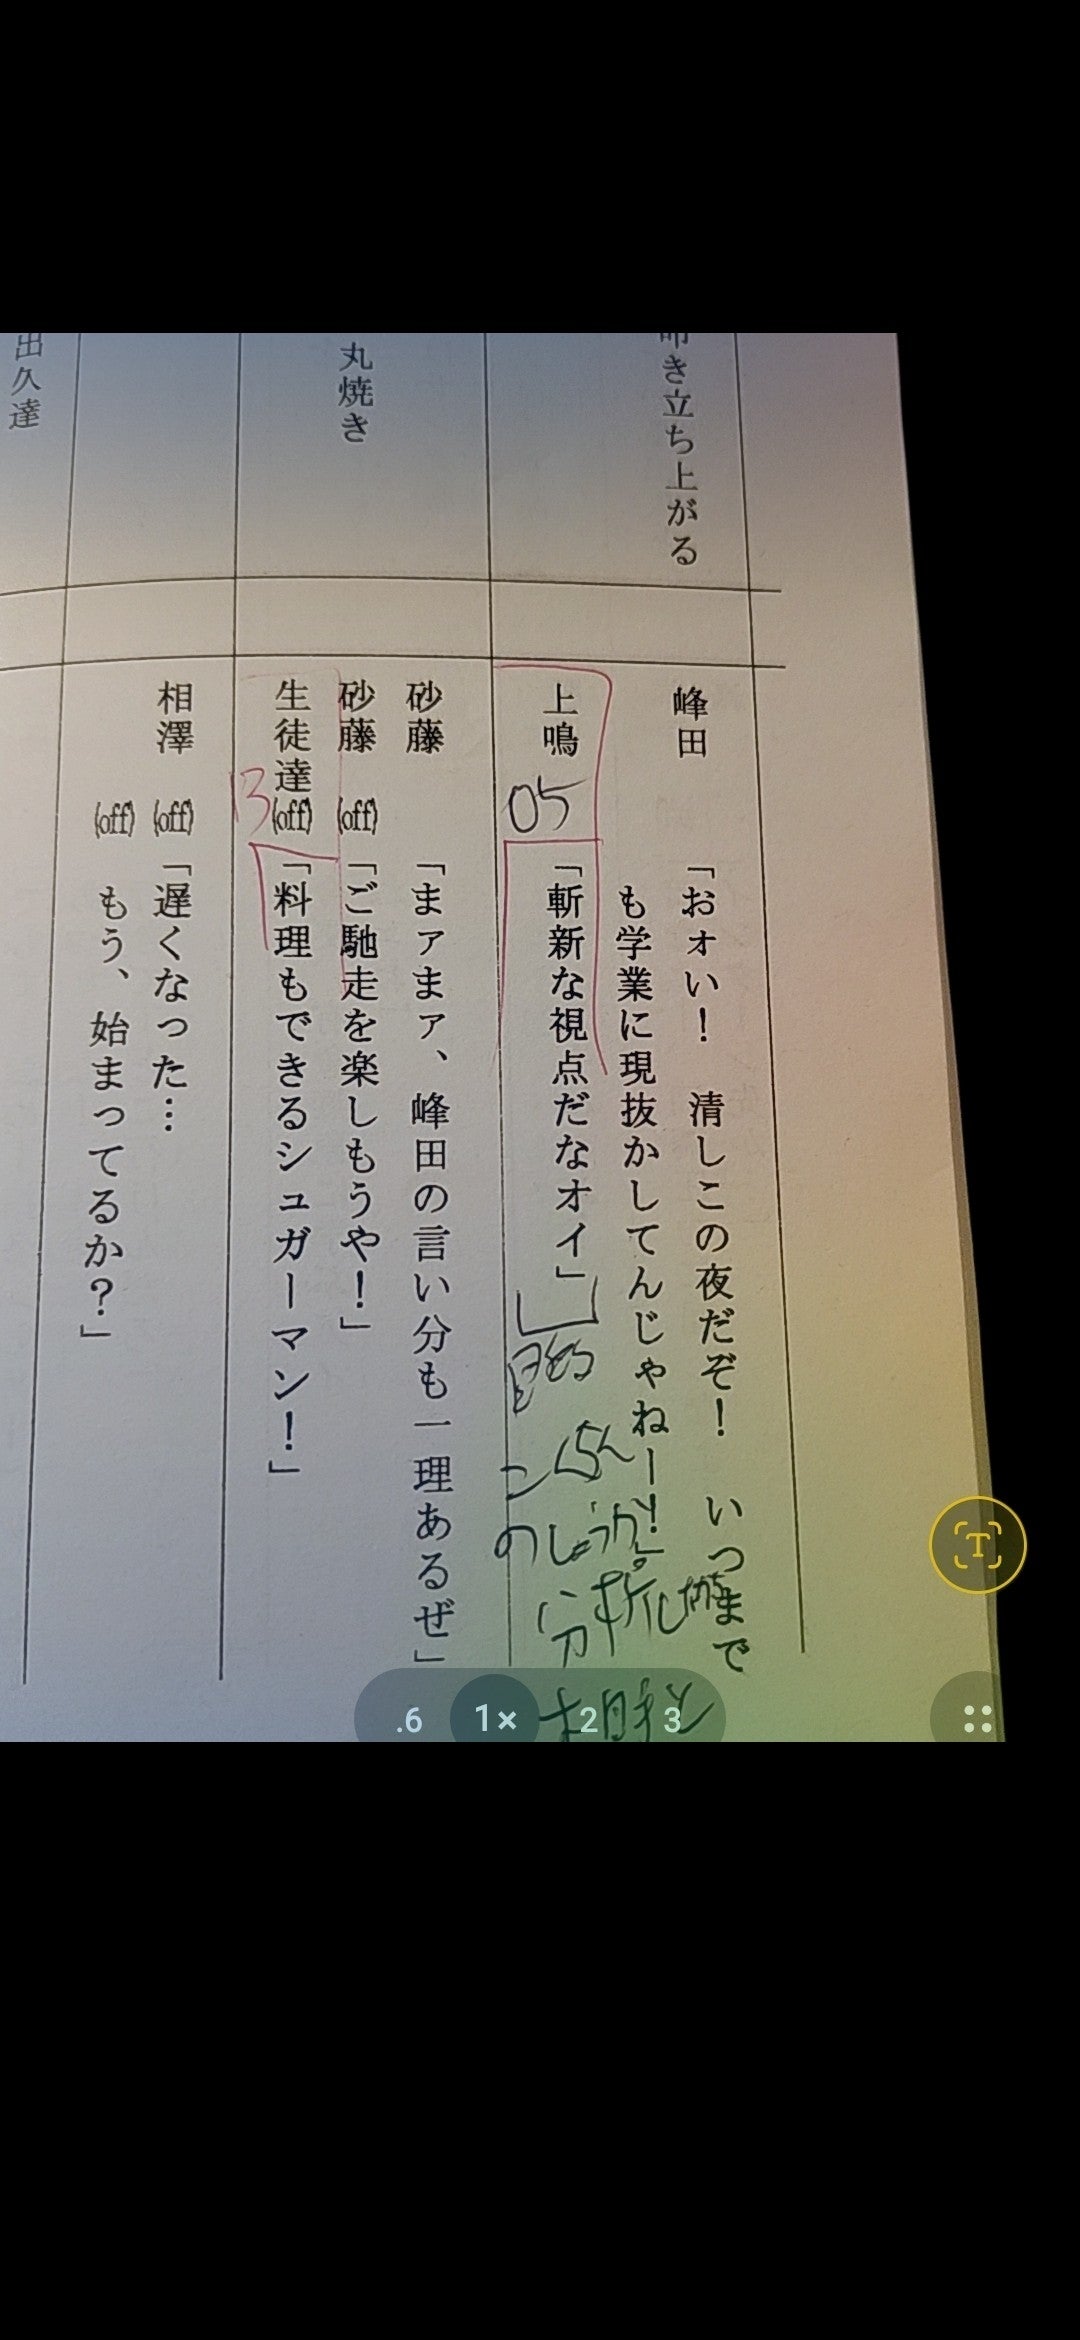 叩き立ち上がる
峰田
「おォい！　清しこの夜だぞ！　いつまで
も学業に現抜かしてんじゃねー！」
上鳴
05
「斬新な視点だなオイ」
のしょうか。
丸焼き
砂藤
「まァまァ、峰田の言い分も一理あるぜ」
砂藤
(off)
「ご馳走を楽しもうや！」
生徒達(off)
13
「料理もできるシュガーマン！」
相澤
(off)
「遅くなった…
(off)
もう、始まってるか？」
出久達
.6
1×
2
3
T